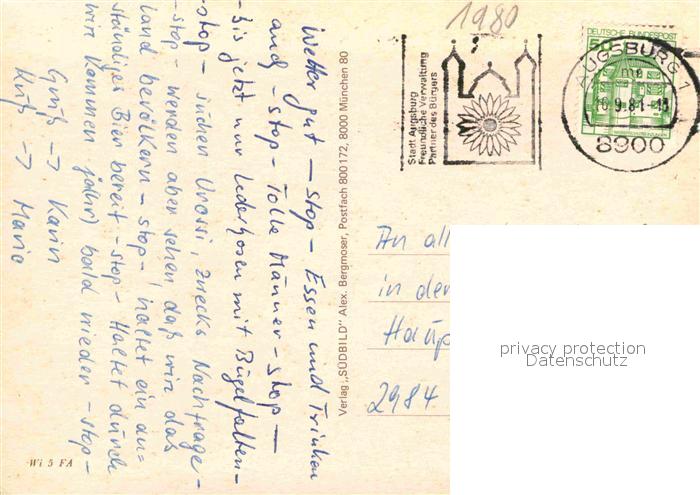 Wetter gut – stop – Essen und Trinken
auch – stop – Tolle Männer – stop –
– bis jetzt nur Lederhosen mit Bügelfalten –
– stop – suchen Urossi, zwecks Nachfrage –
– stop – werden aber sehen, daß wir das
Land bevölkern – stop – haltet ein an=
ständiges Bier bereit – stop – Haltet durch
wir kommen (ohn) bald wieder – stop –
Gruß → Karin
Kuß → Maria
Wi 5 FA
Verlag „SÜDBILD" Alex. Bergmoser, Postfach 800172, 8000 München 80
1980
Stadt Augsburg
Freundliche Verwaltung
Partner des Bürgers
DEUTSCHE BUNDESPOST
50
AUGSBURG 1
me
16.9.81-13
8900
An all
in der
Haup
2984
privacy protection
Datenschutz